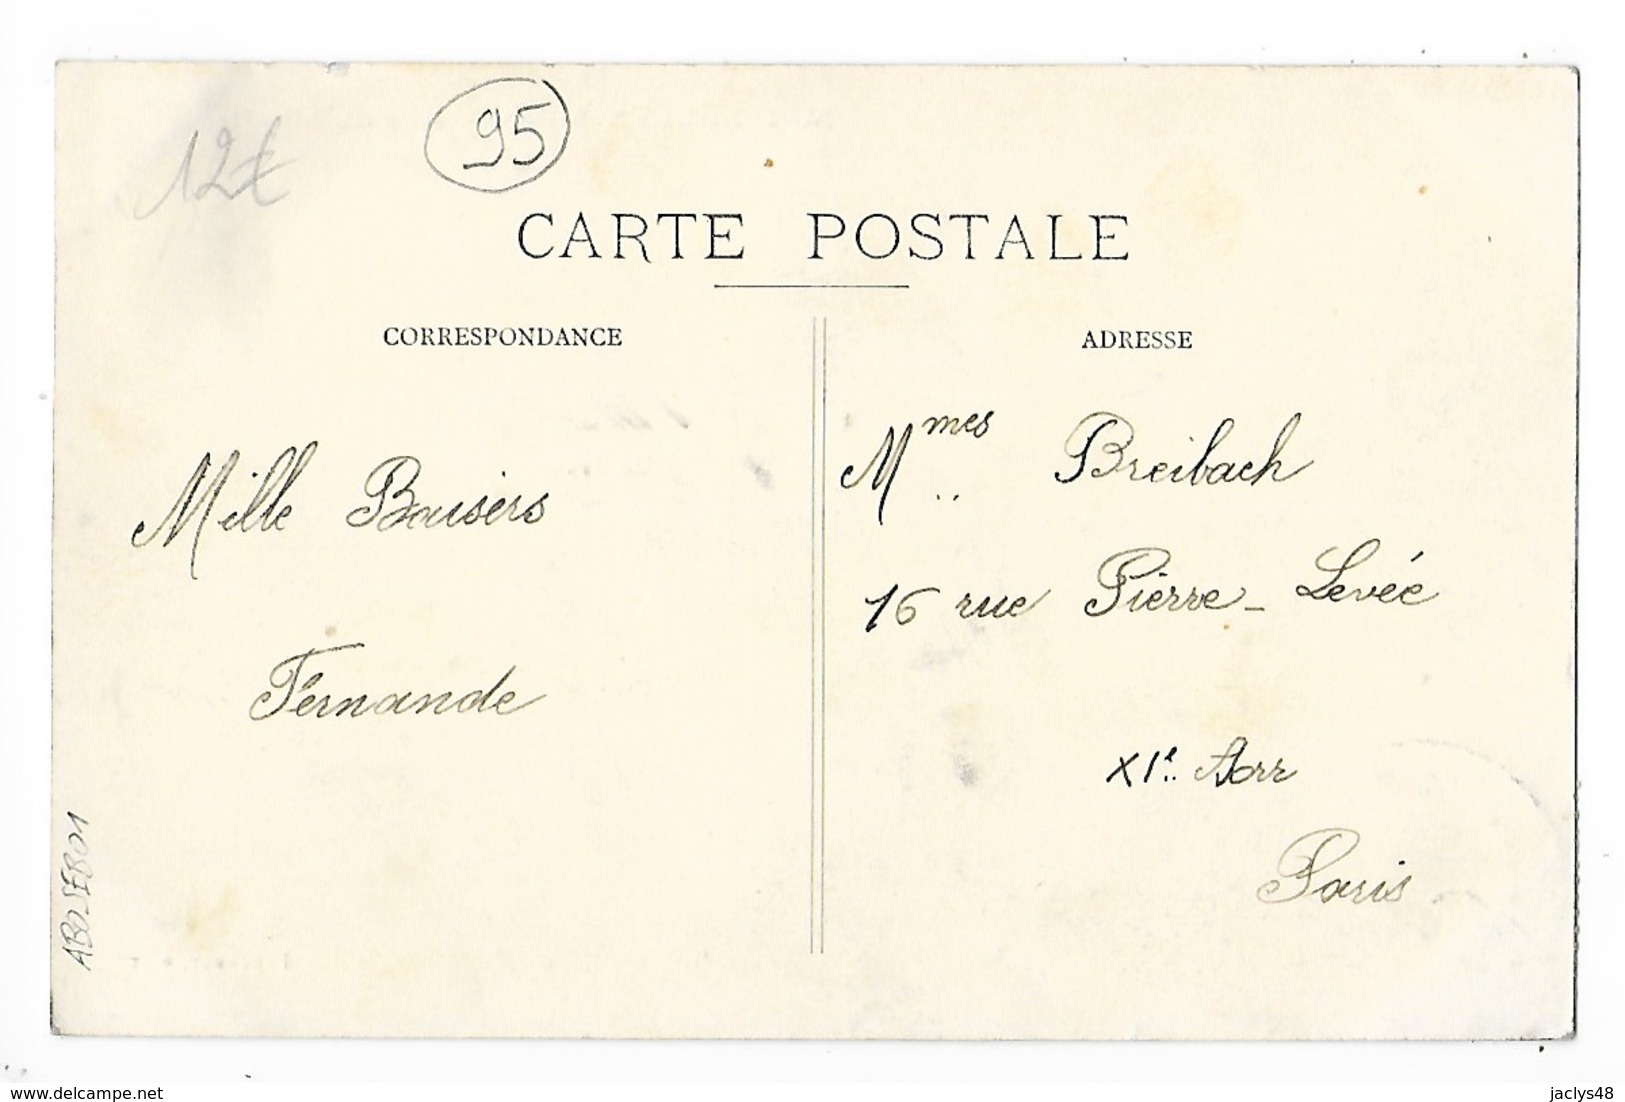 12€
95
CARTE POSTALE
CORRESPONDANCE
Mille Bausers
Fernande
ADRESSE
Mmes Breibach
16 rue Pierre-Levée
XIe Arr
Paris
https://www.delcampe.net
jaclys48